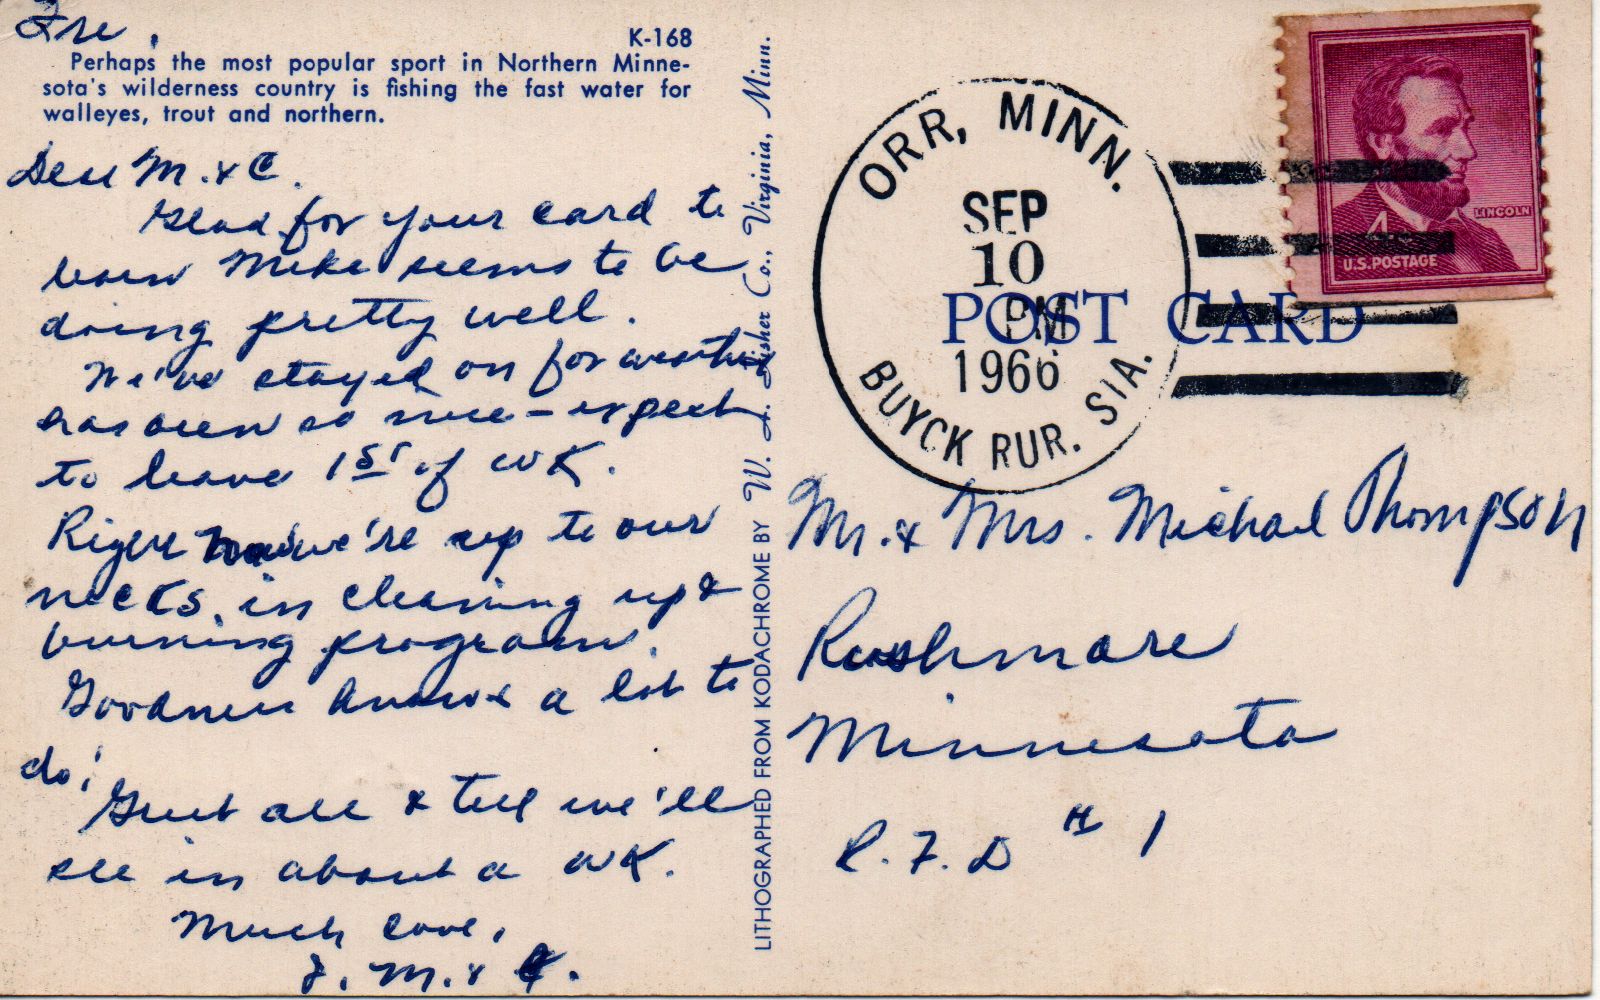 Fri.
K-168
Perhaps the most popular sport in Northern Minne-
sota's wilderness country is fishing the fast water for
walleyes, trout and northern.
Dear M. & C.
Glad for your card to
learn Mike seems to be
doing pretty well.
We've stayed on for weather
has been so nice - expect
to leave 1st of wk.
Right now we're up to our
necks in cleaning up &
burning program.
Goodness knows a lot to
do!
Greet all & tell we'll
see in about a wk.
Much love,
F. M. &
LITHOGRAPHED FROM KODACHROME BY W. A. Fisher Co., Virginia, Minn.
POST CARD
ORR, MINN.
SEP
10
PM
1966
BUYCK RUR. STA.
LINCOLN
4¢
U.S. POSTAGE
Mr. & Mrs. Michael Thompson
Rushmore
Minnesota
R.F.D #1